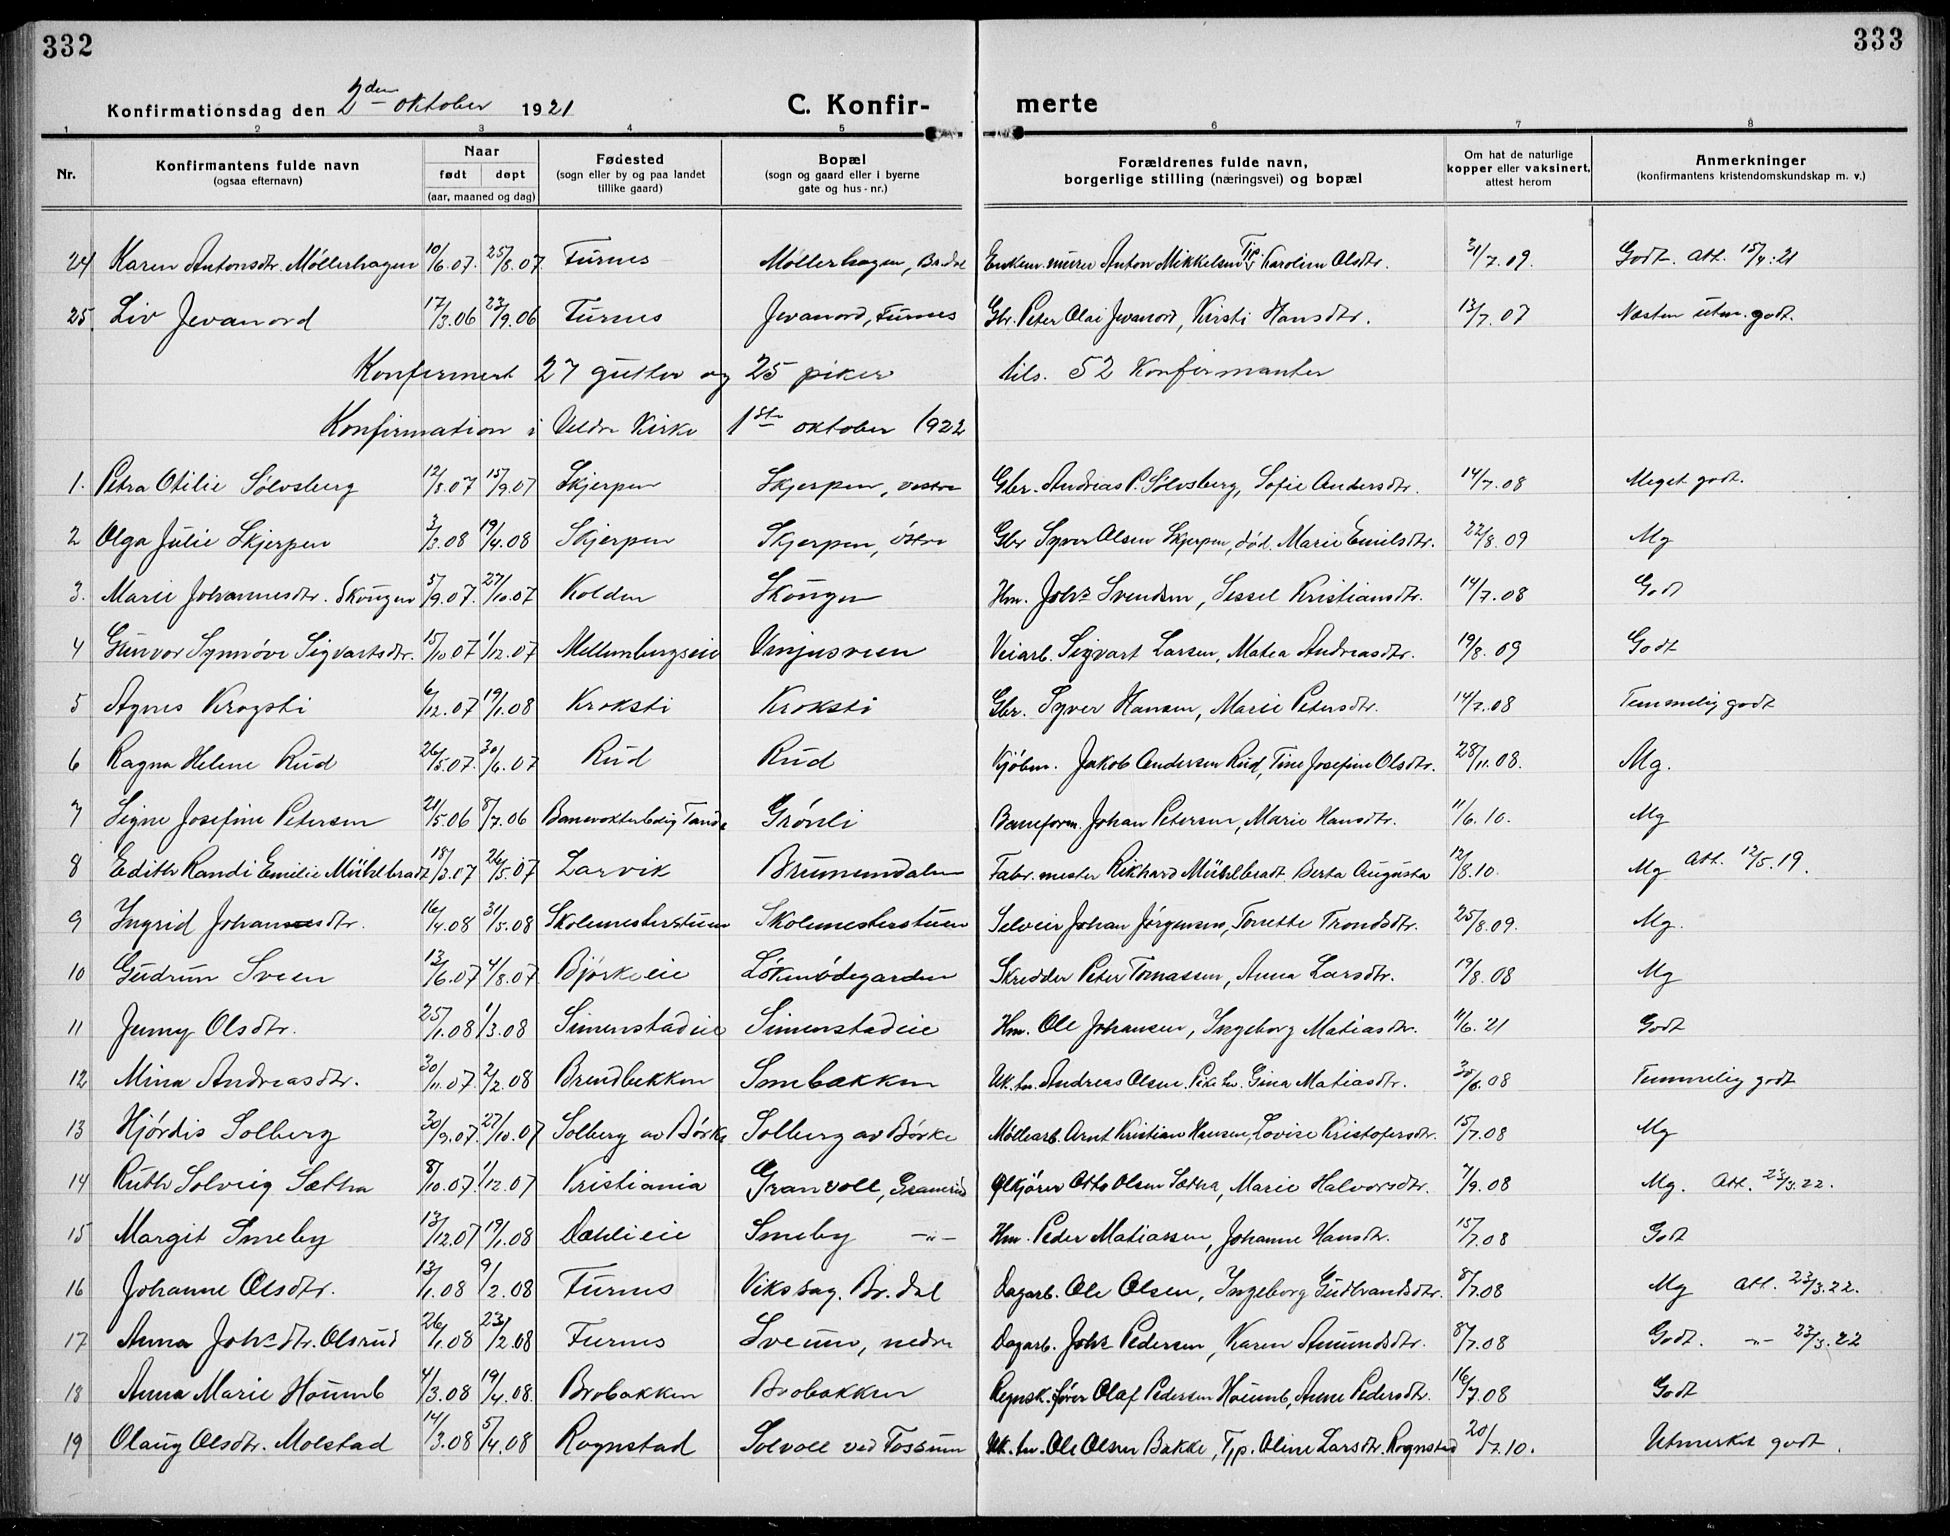 332
333
Konfirmationsdag den 2den oktober 1921
C. Konfir-
merte
1 2 3 4 5 6 7 8
Nr.
Konfirmantens fulde navn
(ogsaa efternavn)
Naar
født døpt
(aar, maaned og dag)
Fødested
(sogn eller by og paa landet
tillike gaard)
Bopæl
(sogn og gaard eller i byerne
gate og hus - nr.)
Forældrenes fulde navn,
borgerlige stilling (næringsvei) og bopæl
Om hat de naturlige
kopper eller vaksinert,
attest herom
Anmerkninger
(konfirmantens kristendomskundskap m. v.)
24 Karen Antonsdtr. Møllerhagen 10/6.07. 25/8.07. Furnes Møllerhagen, Br.dal Enkem. murer Anton Mikkelsen Tjp. Karoline Olsdtr. 31/7.09. Godt. Att. 15/4.21
25. Liv Jevanord 17/3.06 23/9.06 Furnes Jevanord, Furnes Gbr. Peter Olai Jevanord, Kirsti Hansdtr. 13/7.07 Næsten utm. godt.
Konfirmert 27 gutter og 25 piker tils. 52 Konfirmanter
Konfirmation i Veldre Kirke 1ste oktober 1922
1. Petra Otilie Sølvsberg 12/8.07 15/9.07 Skjerpen Skjerpen, vestre Gbr. Andreas P. Sølvsberg, Sofie Andersdtr. 14/7.08 Meget godt.
2 Olga Julie Skjerpen 3/3.08 19/4.08 Skjerpen Skjerpen, østre Gbr Syver Olsen Skjerpen, død. Marie Emilsdtr. 22/8.09 Mg
3. Marie Johannesdtr. Skougen 5/9.07. 27/10.07 Kolden Skougen Hm. Johs Svendsen, Sessel Kristiansdtr. 14/7.08 Godt
4 Gunvor Synnøve Sigvartsdtr. 15/10.07 1/12.07 Mellumbergseie Vinjusveen Veiarb. Sigvart Larsen, Matea Andreasdtr. 19/8.09 Godt
5 Agnes Krogsti 6/12.07 19/1.08 Kroksti Kroksti Gbr. Syver Hansen, Marie Petersdtr. 14/7.08 Temmelig godt
6 Ragna Helene Rud 26/5.07. 30/6.07 Rud Rud Kjøbm. Jakob Andersen Rud, Tine Josefine Olsdtr. 28/11.08. Mg.
7 Signe Josefine Petersen 21/5.06 8/7.06 Banevokterbolig Tande Grønli Baneform. Johan Petersen, Marie Hansdtr. 11/6.10. Mg
8 Edith Randi Emilie Mühlbradt 18/3.07 26/5.07 Larvik Brumunddalen Fabr. mester Rikhard Mühlbradt Berta Augusta 12/8.10. Mg Att. 12/5.19.
9 Ingrid Johansdtr. 16/4.08 31/5.08 Skolemesterstuen Skolemesterstuen Selveier Johan Jørgensen, Tonette Trondsdtr. 25/8.09. Mg.
10 Gudrun Sveen 13/6.07 4/8.07. Bjørkeeie Løkenødegarden Skredder Peter Tomassen, Anna Larsdtr. 19/8.08 Mg
11 Jenny Olsdtr. 25/1.08 1/3.08 Simenstadeie Simenstadeie Hm. Ole Johansen, Ingeborg Matiasdtr. 11/6.21 Godt
12 Mina Andreasdtr. 30/11.07. 2/2.08 Brendbekken Smebakken Uk. hr. Andreas Olsen Pike hr. Gina Matiasdtr. 30/6.08 Temmelig godt
13 Hjördis Solberg 30/9.07. 27/10.07 Solberg av Børke Solberg av Börke Møllearb. Arnt Kristian Hansen, Lovise Kristofersdtr. 15/7.08 Mg
14 Ruth Solveig Sætha 8/10.07. 1/12.07 Kristiania Granvoll, Ølkjører Otto Olsen Sætha, Marie Halvorsdtr. 7/9.08 Mg. Att. 23/3.22.
15 Margit Smeby 13/12.07 19/1.08 Dæhlieie Smeby -"- Hm. Peder Matiassen, Johanne Hansdtr. 15/7.08 Godt
16 Johanne Olsdtr. 13/1.08 9/2.08 Furnes Viksbag. Br.dal Dagarb. Ole Olsen, Ingeborg Gudbrandsdtr. 8/7.08 Mg Att. 23/3.22.
17 Anna Johsdtr. Olsrud 26/1.08 23/2.08 Furnes Sveum, nedre Dagarb. Johs Pedersen, Karen Amundsdtr. 8/7.08 Godt. -"- 23/3.22
18 Anna Marie Houmb 4/3.08 19/4.08. Brobakken Brobakken Regnsk. fører Olaf Pedersen Houmb, Anne Pedersdtr. 16/7.08 Godt
19 Olaug Olsdtr. Molstad 14/3.08 5/4.08 Rognstad Solvoll ved Fossum Uk. hr. Ole Olsen Bakke, Tjp. Oline Larsdtr. Rognstad 20/7.10. Utmerket godt.